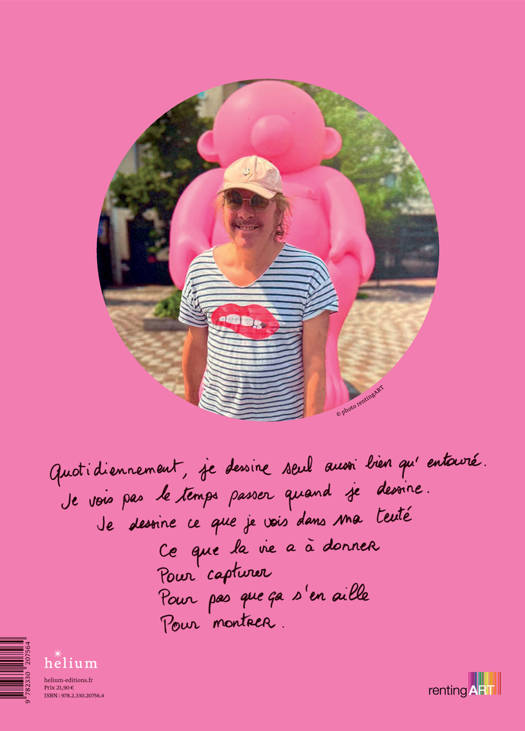 © photo rentingART
Quotidiennement, je dessine seul aussi bien qu'entouré.
Je vois pas le temps passer quand je dessine.
Je dessine ce que je vois dans ma teuté
Ce que la vie a à donner
Pour capturer
Pour pas que ça s'en aille
Pour montrer.
helium
helium-editions.fr
Prix 21,90 €
ISBN : 978.2.330.20756.4
9 782330 207564
rentingART